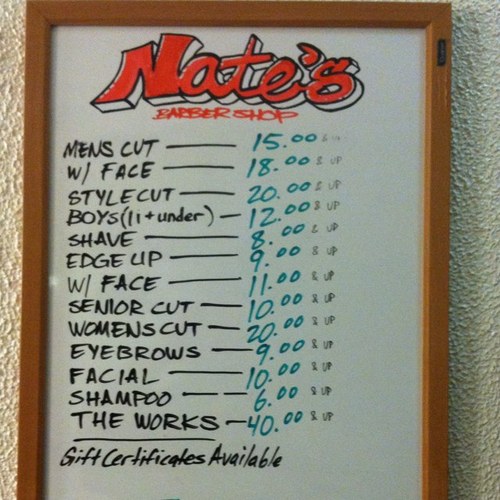 Nate's
BARBER SHOP
MENS CUT — 15.00 & UP
W/ FACE — 18.00 & UP
STYLE CUT — 20.00 & UP
BOYS (11 + under) — 12.00 & UP
SHAVE — 8.00 & UP
EDGE UP — 9.00 & UP
W/ FACE — 11.00 & UP
SENIOR CUT — 10.00 & UP
WOMENS CUT — 20.00 & UP
EYEBROWS — 9.00 & UP
FACIAL — 10.00 & UP
SHAMPOO — — 6.00 & UP
THE WORKS — 40.00 & UP
Gift Certificates Available